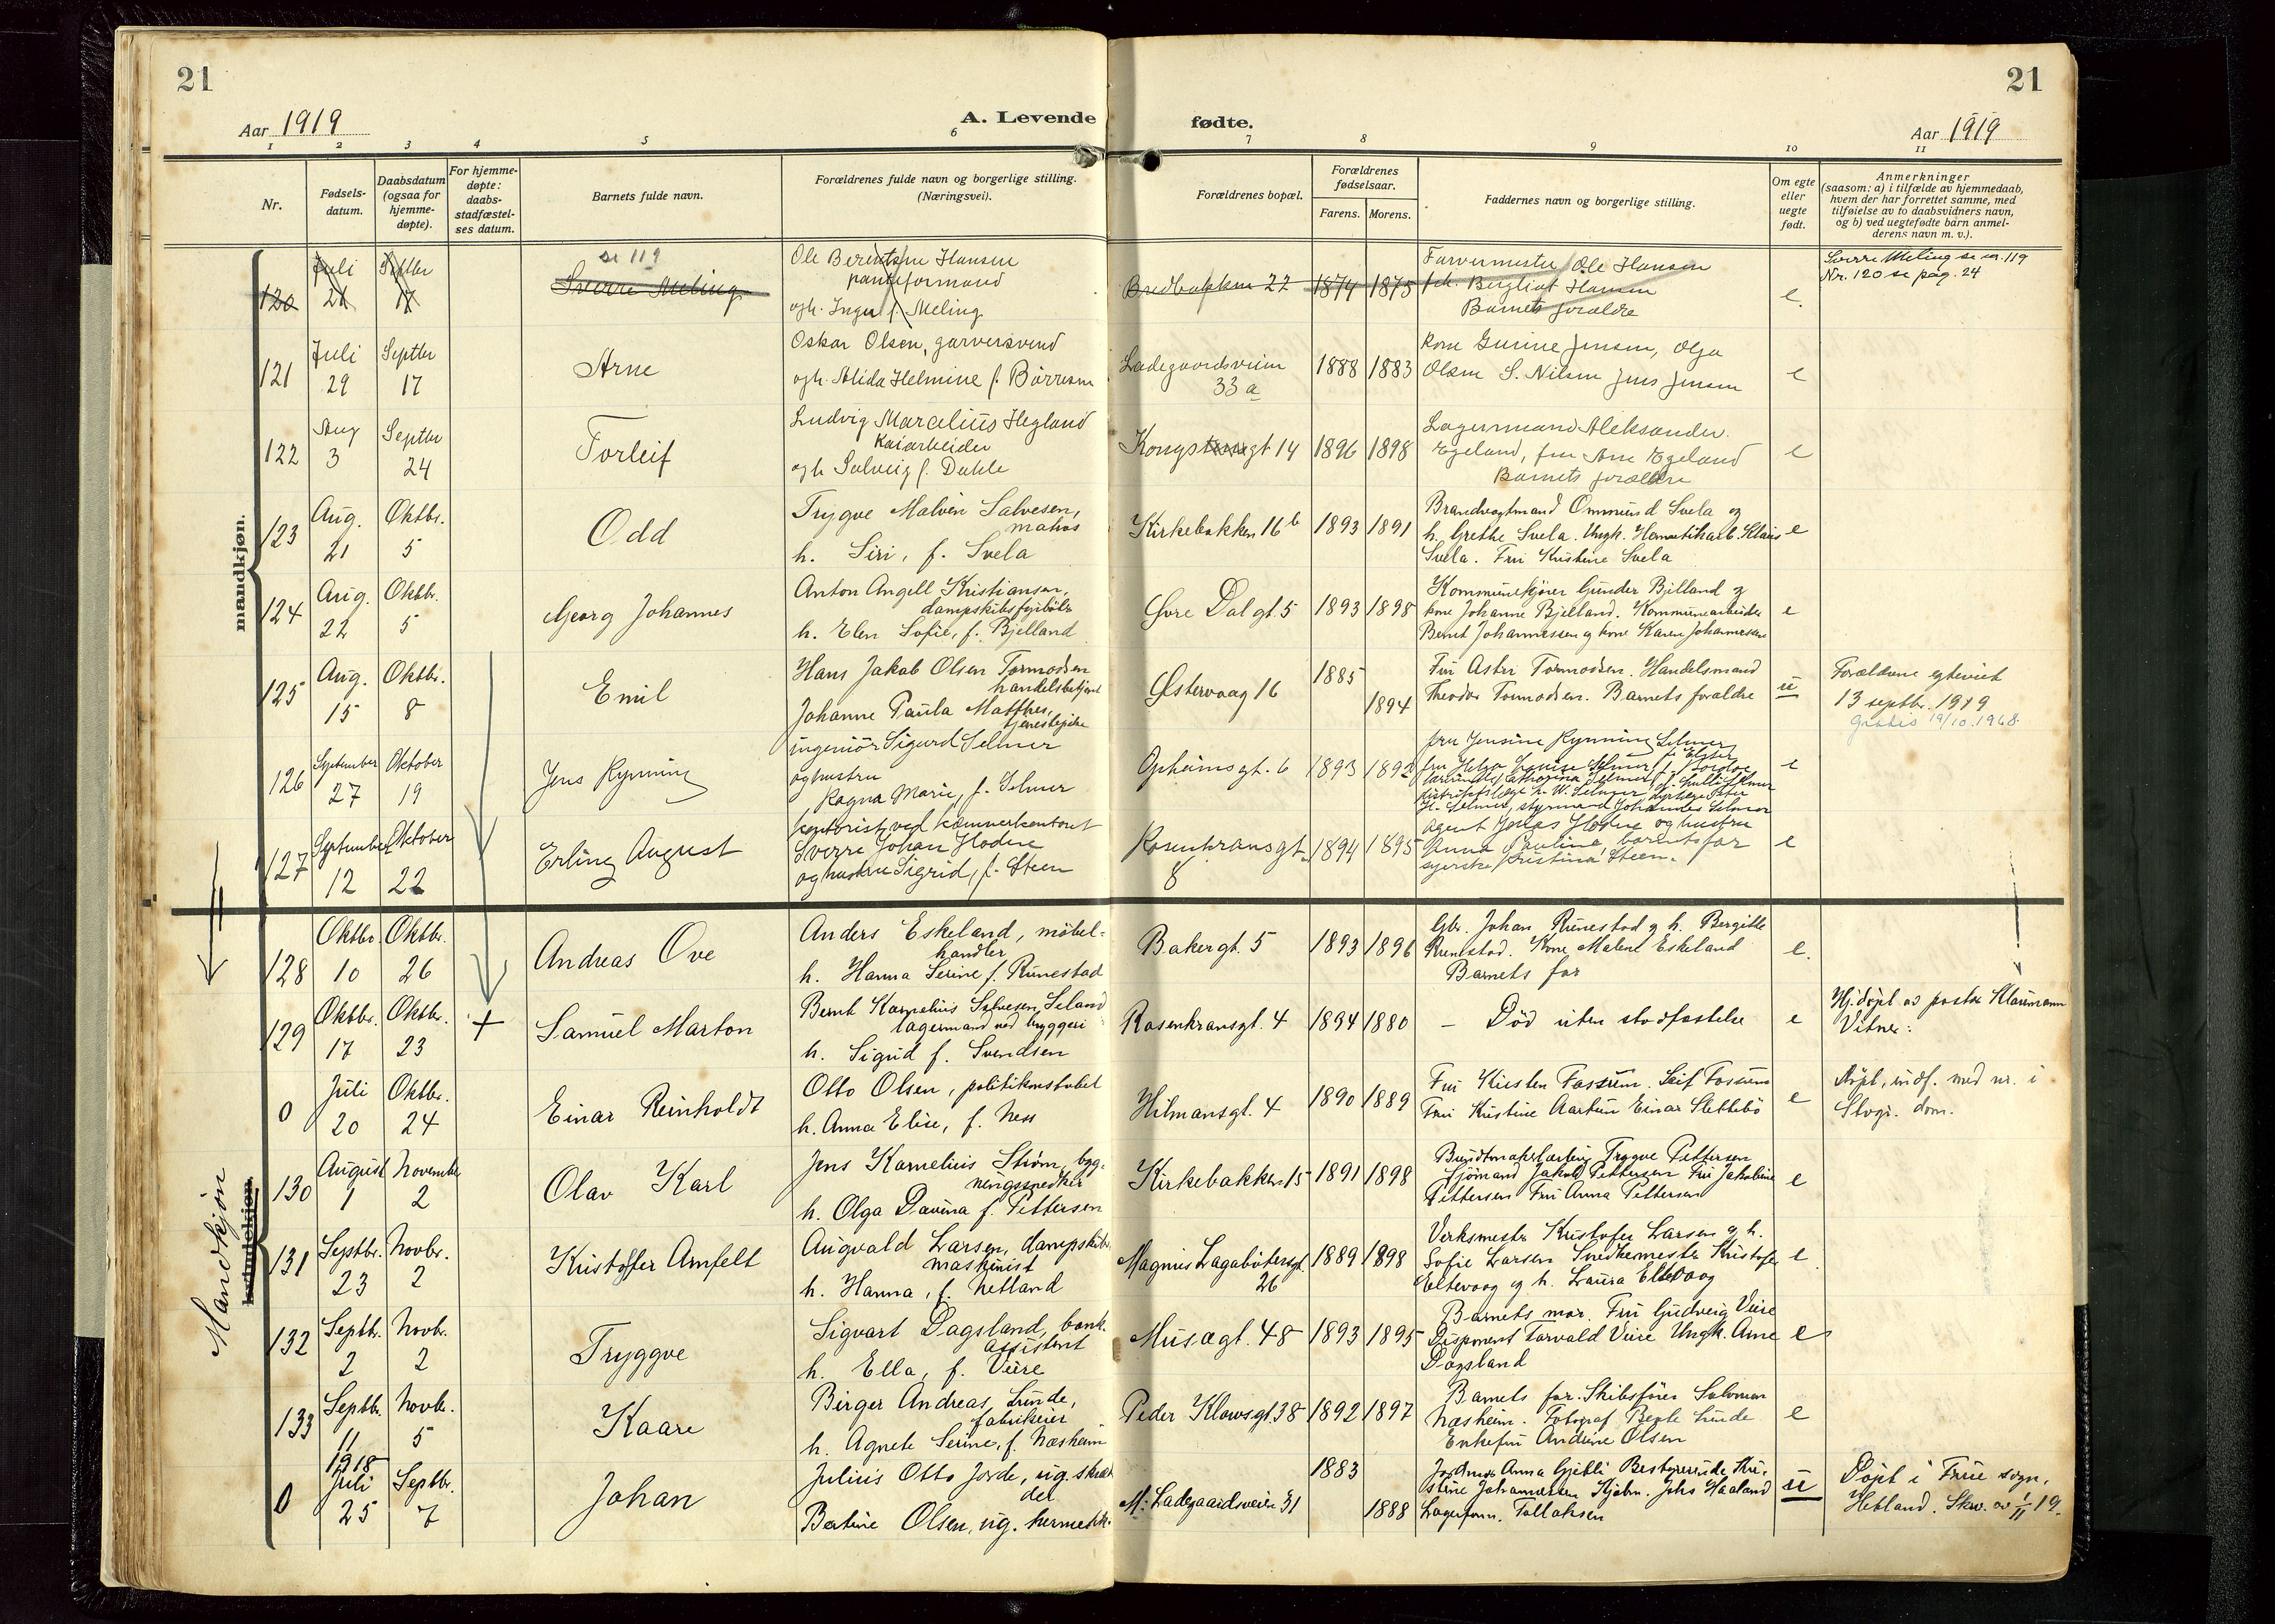 21
21
Aar 1919
A. Levende
fødte.
Aar 1919
1 2 3 4 5 6 7 8 9 10 11
Nr.
Fødsels-
datum.
Daabsdatum
(ogsaa for
hjemme-
døpte).
For hjemme-
døpte:
daabs-
stadfæstel-
ses datum.
Barnets fulde navn.
Forældrenes fulde navn og borgerlige stilling.
(Næringsvei).
Forældrenes bopæl.
Forældrenes
fødselsaar.
Farens. Morens.
Faddernes navn og borgerlige stilling.
Om egte
eller
uegte
født.
Anmerkninger
(saasom: a) i tilfælde av hjemmedaab,
hvem der har forrettet samme, med
tilføielse av to daabsvidners navn,
og b) ved uegtefødte barn anmel-
derens navn m. v.).
mandkjøn.
120
Juli
21
Septbr
17
se 119
Sverre Meling
Ole Berentsine Hansen
formand
og h. Inger f. Meling
Bredbakken 22
1874 1875
Farvermester Ole Hansen
frk. Bergliot Hansen
Barnets forældre
e.
Sverre Meling se nr. 119
Nr. 120 se pag. 24
121
Juli
29
Septbr
17
Arne
Oskar Olsen, garversvend
og h. Alida Helmine f. Børresen
Ladegaardsveien
33 a
1888 1883
Kone Gurine Jensen, Olga
Olsen S. Nilsen Jens Jensen
e
122
Aug
3
Septbr
24
Torleif
Ludvig Marcelius Hegland
Kaiarbeider
og h. Solveig f. Dahle
Kongsgt 14
1896 1898
Lagermand Aleksander
Egeland, fru Ane Egeland
Barnets forældre
e
123
Aug.
21
Oktbr.
5
Odd
Trygve Malvin Salvesen,
matros
h. Siri, f. Svela
Kirkebakken 16 b
1893 1891
Brandvagtmand Ommund Svela og
h. Grethe Svela. Ungk. Hermetikarb. Klaus
Svela. Fru Kristine Svela
e
124
Aug.
22
Oktbr.
5
Georg Johannes
Anton Angell Kristiansen,
dampskibsfyrbøter
h. Elen Sofie, f. Bjelland
Øvre Dalgt. 5
1893 1898
Kommunekjører Gunder Bjelland og
kone Johanne Bjelland. Kommunearbeider
Bernt Johannessen og kone Karen Johannessen
e
125
Aug.
15
Oktbr.
8
Emil
Hans Jakob Olsen Tormodsen
handelsbetjent
Johanne Paula Matthes,
tjenestepike
Østervaag 16
1885
1894
Fru Astri Tormodsen. Handelsmand
Theodor Tormodsen. Barnets forældre
u
Forældrene egteviet
13 septbr. 1919
Gratis 19/10.1968.
126
September
27
Oktober
19
Jens Rynning
ingeniør Sigurd Selmer
og hustru
Ragna Marie, f. Selmer
Opheimsgt. 6
1893 1892
fru Jensine Rynning Selmer
fru Helga Louise Selmer,
lærerinde Cathrina Selmer,
distriktslæge W. Selmer, dyrlæge Peter
H. Selmer, styrmand Johannes Selmer
e
127
September
12
Oktober
22
Erling August
kontorist ved kæmnerkontoret
Sverre Johan Hodne
og hustru Sigrid, f. Steen
Rosenkransgt.
8
1894 1895
Agent Jonas Hodne og hustru
Anna Pauline, barnets far
syerske Kristina Steen.
e
128
Oktbr.
10
Oktbr.
26
Andreas Ove
Anders Eskeland, møbel-
handler
h. Hanna Serine f. Runestad
Bakergt. 5
1893 1896
Gbr. Johan Runestad og h. Bergitte
Runestad. Kone Malene Eskeland
Barnets far
e.
129
Oktbr.
17
Oktbr.
23
+
Samuel Marton
Bernt Kornelius Salvesen Seland
lagermand ved bryggeri
h. Sigrid f. Svendsen
Rosenkransgt. 4
1894 1880
– Død uten stadfæstelse
e
Hj.døpt av pastor Klaumann
Vitner:
0
Juli
20
Oktbr.
24
Einar Reinholdt
Otto Olsen, politikonstabel
h. Anna Elise, f. Ness
Hilmansgt. 4
1890 1889
Fru Kirsten Fossum. Leif Fossum
Fru Kristine Aartun Einar Slettebø
e
Døpt, indf. med nr. i
Stvgr. dom.
Mandkjøn
kvindekjøn.
130
August
1
November
2
Olav Karl
Jens Kornelius Strøm, byg-
ningssnedker
h. Olga Davina f. Pettersen
Kirkebakken 15
1891 1898
Bundtmakerlærling Trygve Pettersen
Sjømand Jakob Pettersen Fru Jakobine
Pettersen Fru Anna Pettersen
e
131
Septbr.
23
Novbr.
2
Kristoffer Arnfelt
Augvald Larsen, dampskibs-
maskinist
h. Hanna, f. Netland
Magnus Lagabøtersgt.
26
1889 1898
Verksmester Kristofer Larsen og h.
Sofie Larsen Snedkermester Kristofer
Eltevaag og h. Laura Eltevaag
e
132
Septbr.
2
Novbr.
2
Tryggve
Sigvart Dagsland, bank-
assistent
h. Ella, f. Veire
Musægt. 48
1893 1895
Barnets mor. Fru Gudveig Veire
Disponent Torvald Veire Ungk. Arne
Dagsland
e
133
Septbr.
11
Novbr.
5
Kaare
Birger Andreas Lunde,
fabrikeier
h. Agnete Serine, f. Næsheim
Peder Klowsgt. 38
1892 1897
Barnets far. Skibsfører Salomon
Næsheim. Fotograf Bertle Lunde
Enkefru Andrine Olsen
e
0
1918
Juli
25
Septbr.
7
Johan
Julius Otto Jorde, ug. skræd
der
Bertine Olsen, ug. hermetik-
M: Ladegaardsveien 31
1883
1888
Jordmor Anna Gjetli Bestyrerinde Kri-
stine Johannessen Kjøbm. Johs Haaland
Lagerform. Tallaksen
u
Døpt i Frue sogn.
Hetland. Skr. av 1/11 19.